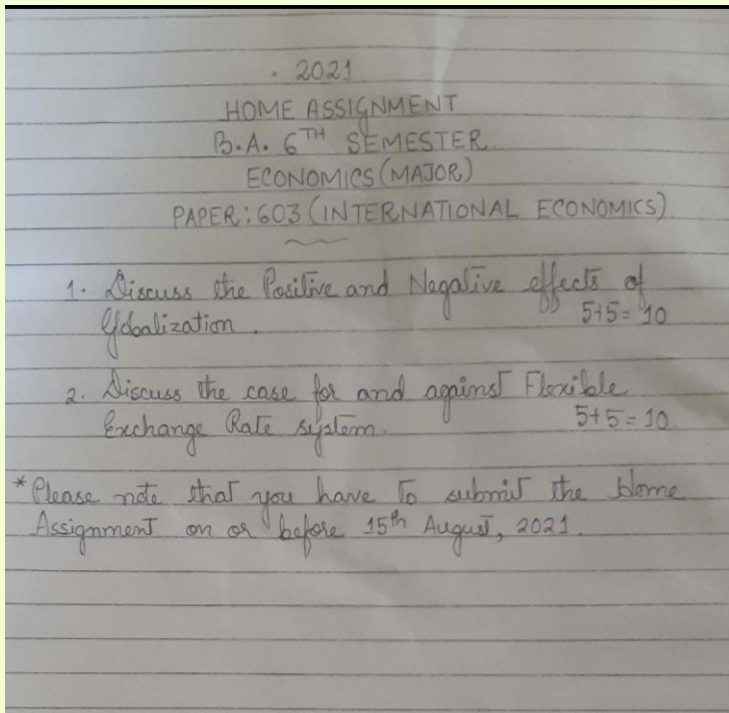 . 2021
HOME ASSIGNMENT
B.A. 6TH SEMESTER
ECONOMICS (MAJOR)
PAPER: 603 (INTERNATIONAL ECONOMICS)
1. Discuss the Positive and Negative effects of
Globalization. 5+5=10
2. Discuss the case for and against Flexible
Exchange Rate system. 5+5=10
* Please note that you have to submit the Home
Assignment on or before 15th August, 2021.